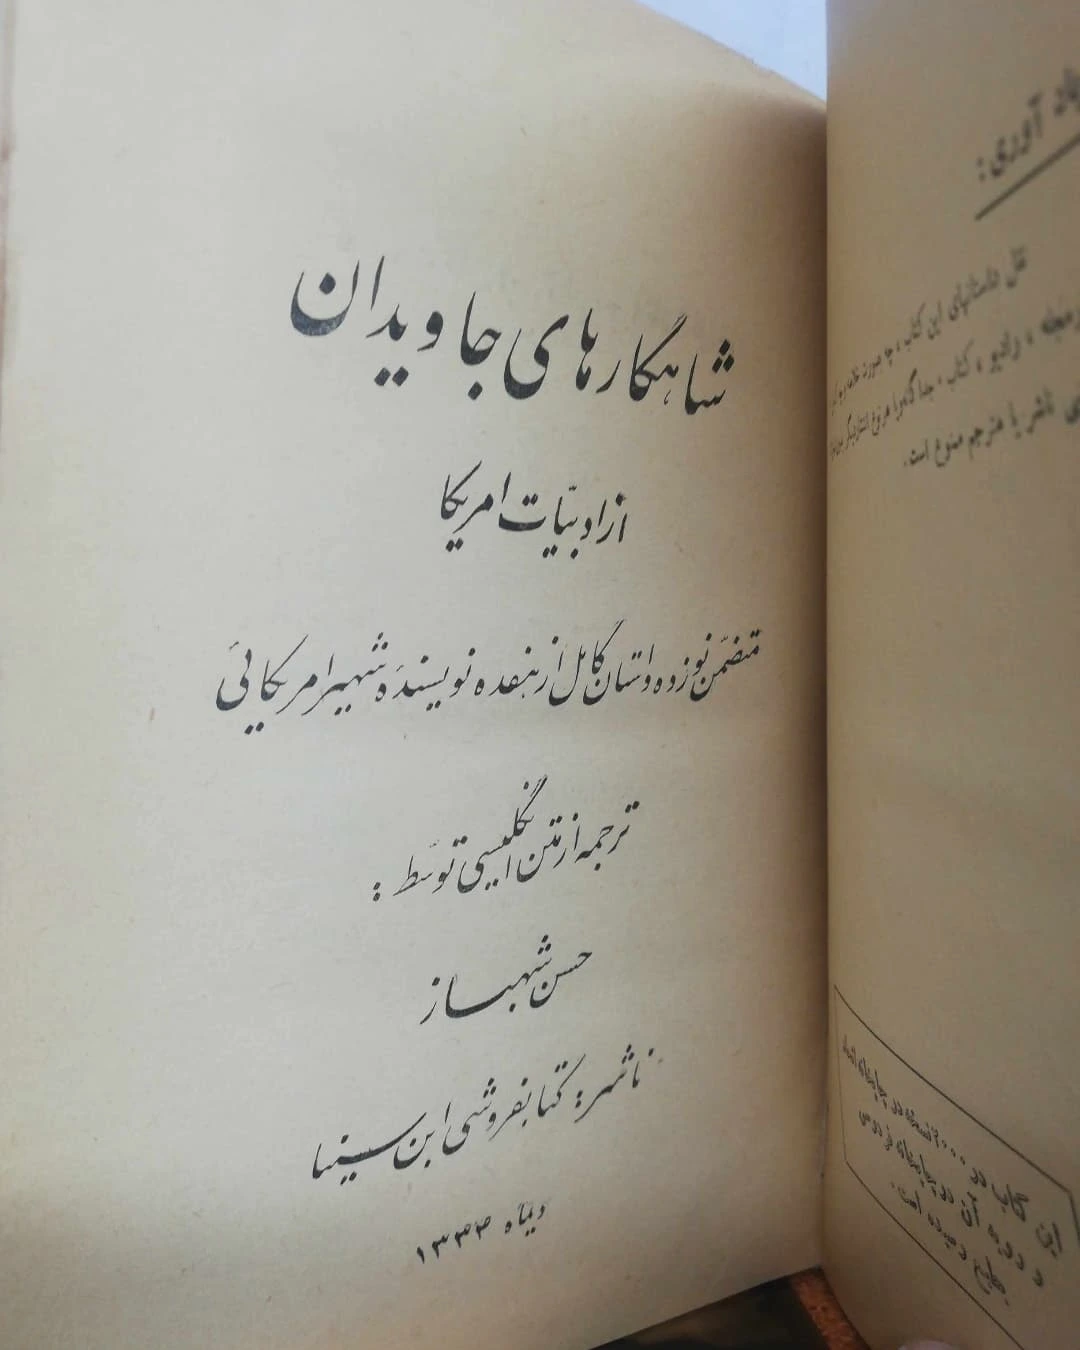 شاهکارهای جاویدان
از ادبیّات امریکا
متضمّن نوزده داستان کامل از هفده نویسندهٔ شهیر امریکائی
ترجمه از متن انگلیسی توسّط :
حسن شهباز
ناشر : کتابفروشی ابن سینا
دیماه ۱۳۳۴
یاد آوری :
نقل داستانهای این کتاب ، چه بصورت
مجله ، رادیو ، کتاب ، جداگانه و یا هر نوع
ناشر یا مترجم ممنوع است .
این کتاب در ۲۰۰۰ نسخه در چاپخانه اتحاد
و رویه آن در چاپخانه فردوسی
بطبع رسیده است .